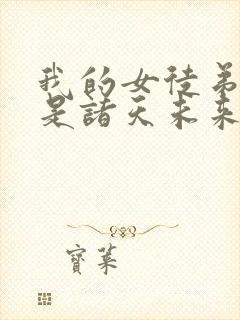 我的女徒弟
是諸天未来
寶菜